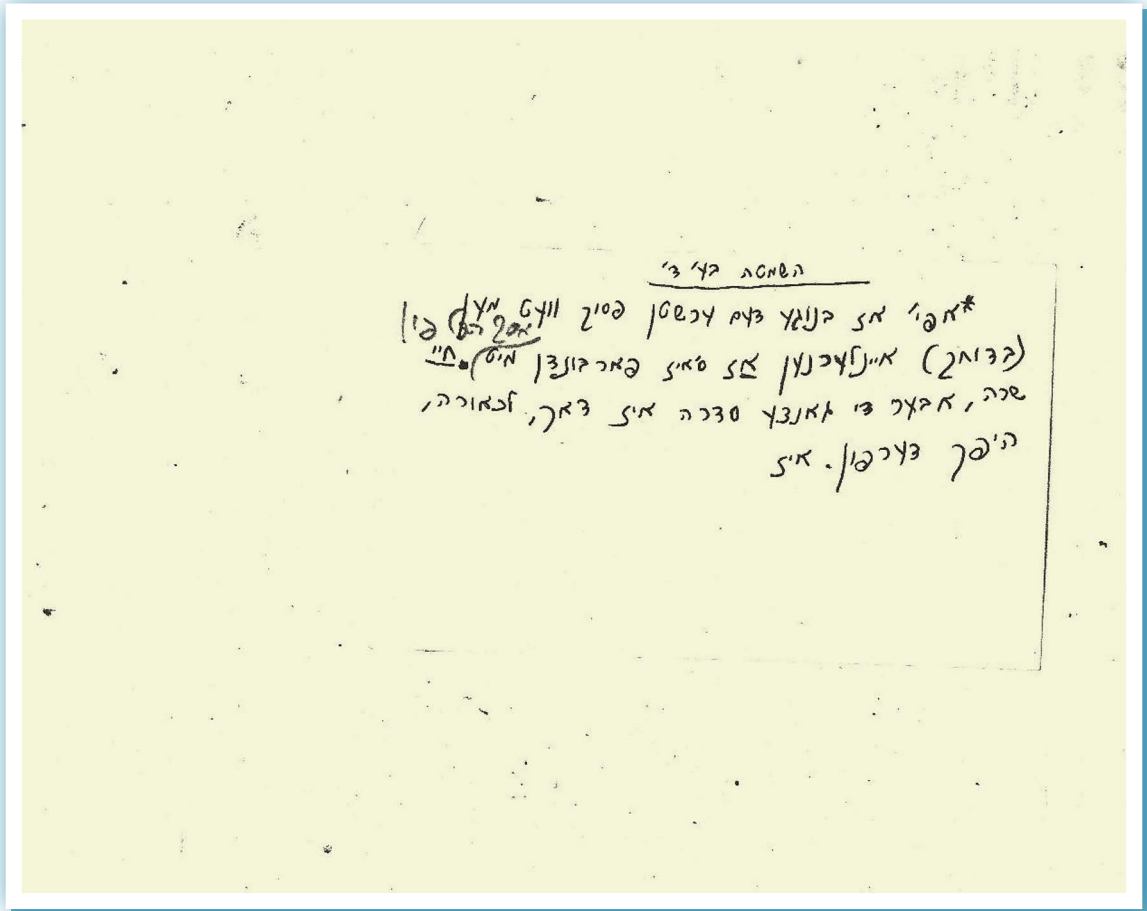 השמטה בע' ד'
*אפי' אז בנוגע דעם ערשטן פסוק וועט מען
(בדוחק) איינלערנען אז ס'איז פארבונדן מיט חיי
שרה, אבער די גאנצע סדרה איז דאך, לכאורה,
היפך דערפון. איז